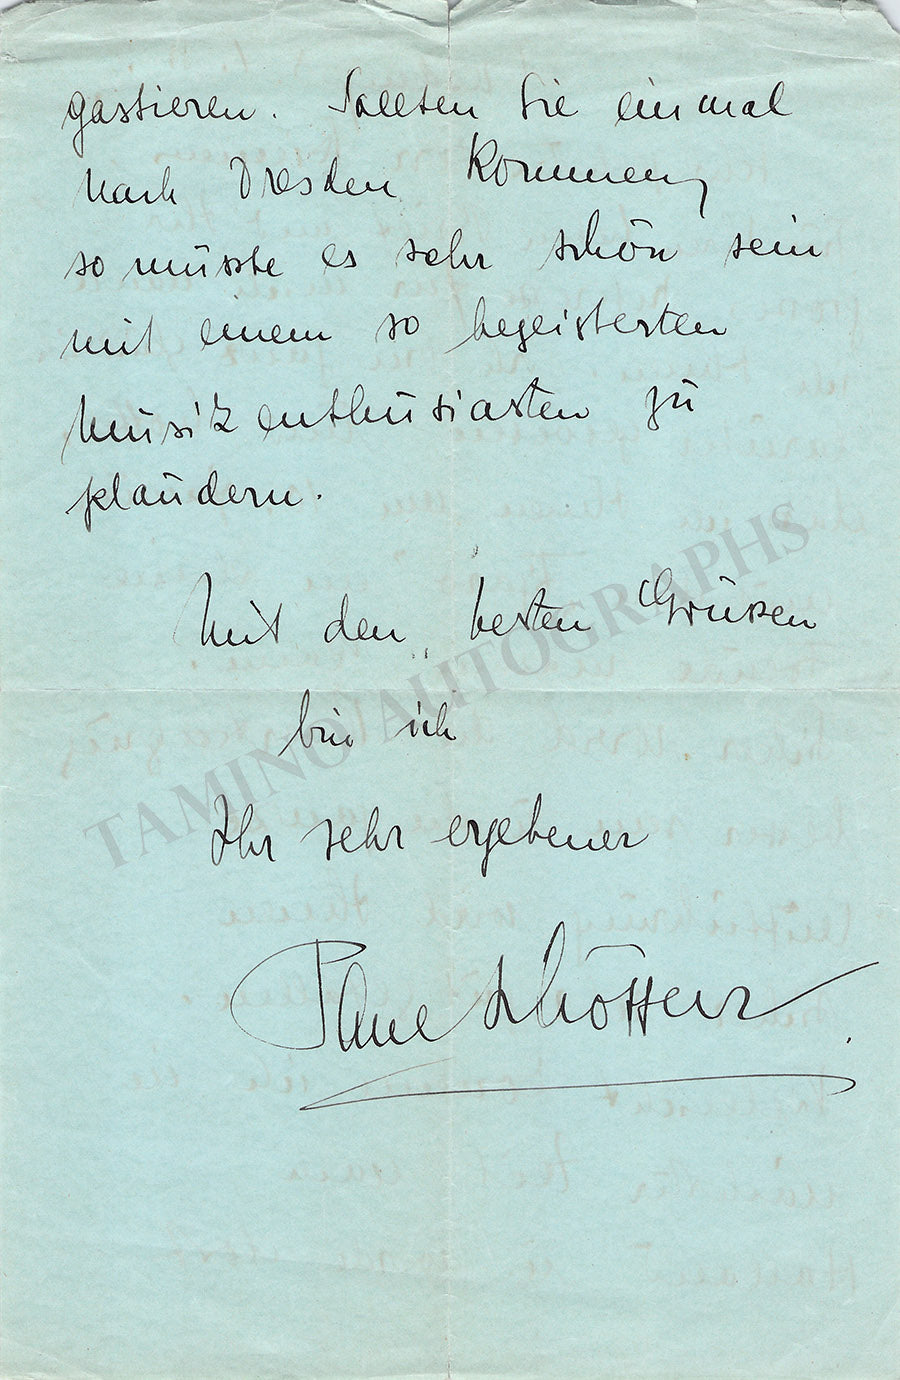 gastieren. Sollten Sie einmal
nach Dresden kommen,
so müsste es sehr schön sein
mit einem so begeisterten
Musikenthusiasten zu
plaudern.
Mit den besten Grüssen
bin ich
Ihr sehr ergebener
Paul Schöffler
TAMINO AUTOGRAPHS